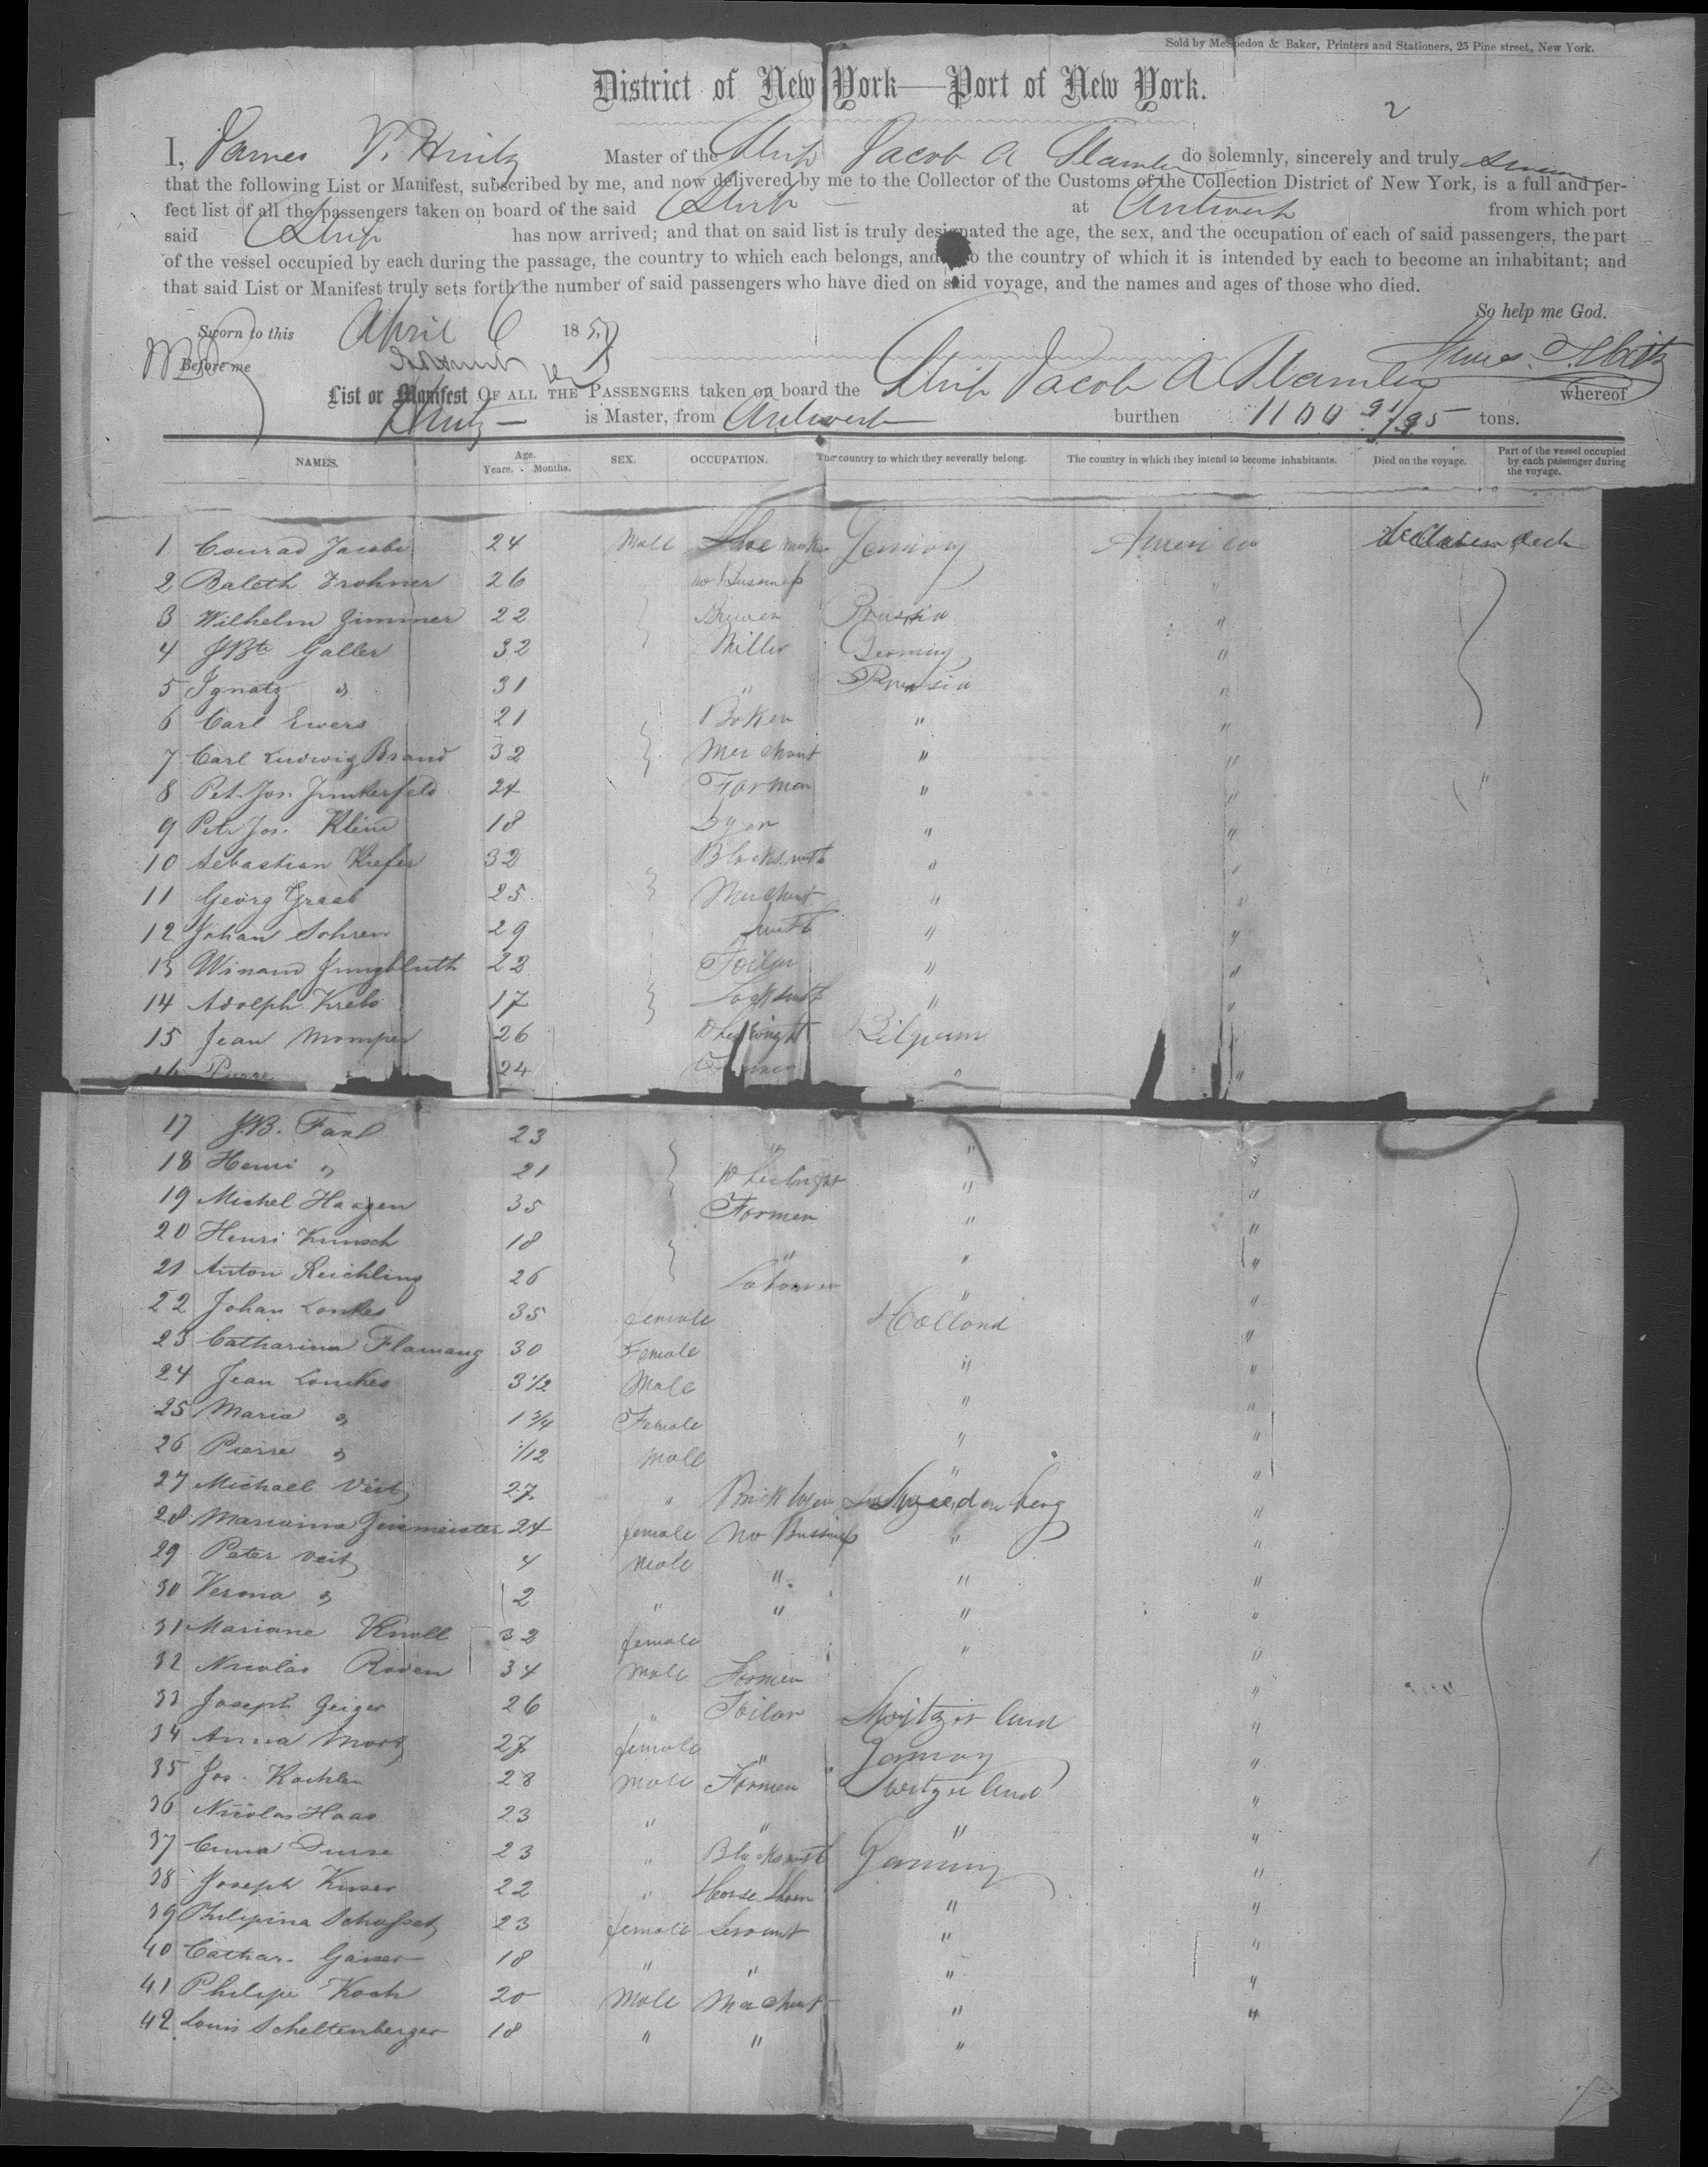 Sold by McSpedon & Baker, Printers and Stationers, 25 Pine street, New York.
District of New York—Port of New York.
2
I, James Master of the Ship Jacob A Stamler do solemnly, sincerely and truly swear
that the following List or Manifest, subscribed by me, and now delivered by me to the Collector of the Customs of the Collection District of New York, is a full and per-
fect list of all the passengers taken on board of the said Ship at Antwerp from which port
said Ship has now arrived; and that on said list is truly designated the age, the sex, and the occupation of each of said passengers, the part
of the vessel occupied by each during the passage, the country to which each belongs, and also the country of which it is intended by each to become an inhabitant; and
that said List or Manifest truly sets forth the number of said passengers who have died on said voyage, and the names and ages of those who died.
So help me God.
Sworn to this April 6 185
Before me
List or Manifest OF ALL THE PASSENGERS taken on board the Ship Jacob A Stamler whereof
is Master, from Antwerp burthen 1100 91/95 tons.
NAMES. Age. Years. Months. SEX. OCCUPATION. The country to which they severally belong. The country in which they intend to become inhabitants. Died on the voyage. Part of the vessel occupied by each passenger during the voyage.
1 Conrad Jacobi 24 Male Shoe maker Germany America deck
2 Baleth Frohner 26 no Bussness "
3 Wilhelm Zimmer 22 Brewer Prussia "
4 J Bte Galler 32 Miller Germany "
5 Ignatz " 31 " Prussia "
6 Carl Ewers 21 Baker " "
7 Carl Ludwig Brand 32 Merchant " "
8 Pet. Jos. Junkerfeld 24 Farmer " " "
9 Pet. Jos. Klein 18 Dyer " "
10 Sebastian Kiefer 32 Blacksmith " "
11 Georg Graeb 25 Merchant " "
12 Johan Sohren 29 smith " "
13 Winand Jungbluth 22 Tailor " "
14 Adolph Krebs 17 Locksmith " "
15 Jean Momper 26 Wheelwright Belgium "
16 Pierre " 24 Farmer " "
17 J.B. Faul 23 " " "
18 Henri " 21 Wheelwright " "
19 Michel Haagen 35 Farmer " "
20 Henri Kunsch 18 " " "
21 Anton Reichling 26 Laborer " "
22 Johan Lonkes 35 female Holland "
23 Catharina Flamang 30 Female " "
24 Jean Lonkes 3 1/2 Male " "
25 Maria " 1 3/4 Female " "
26 Pierre " 1/12 Male " "
27 Michael Veit 27 " Brick layer "
28 24 female No Bussness " "
29 Peter Veit 4 Male " " "
30 Verona " 2 " " " "
31 Mariane Knoll 32 female " "
32 Nicolas Roden 34 Male Farmer "
33 Joseph Geiger 26 " Tailor Switzerland "
34 Anna 27 female " Germany "
35 Jos. Kachlen 28 Male Farmer Switzerland "
36 Nicolas Haas 23 " " " "
37 23 " Blacksmith Germany "
38 Joseph Kuser 22 " Horse Shoer " "
39 Philipina 23 female Servant " "
40 Cathar. Ganser 18 " " " "
41 Philipe Koch 20 Male Merchant " "
42 Louis Scheltenberger 18 " " "